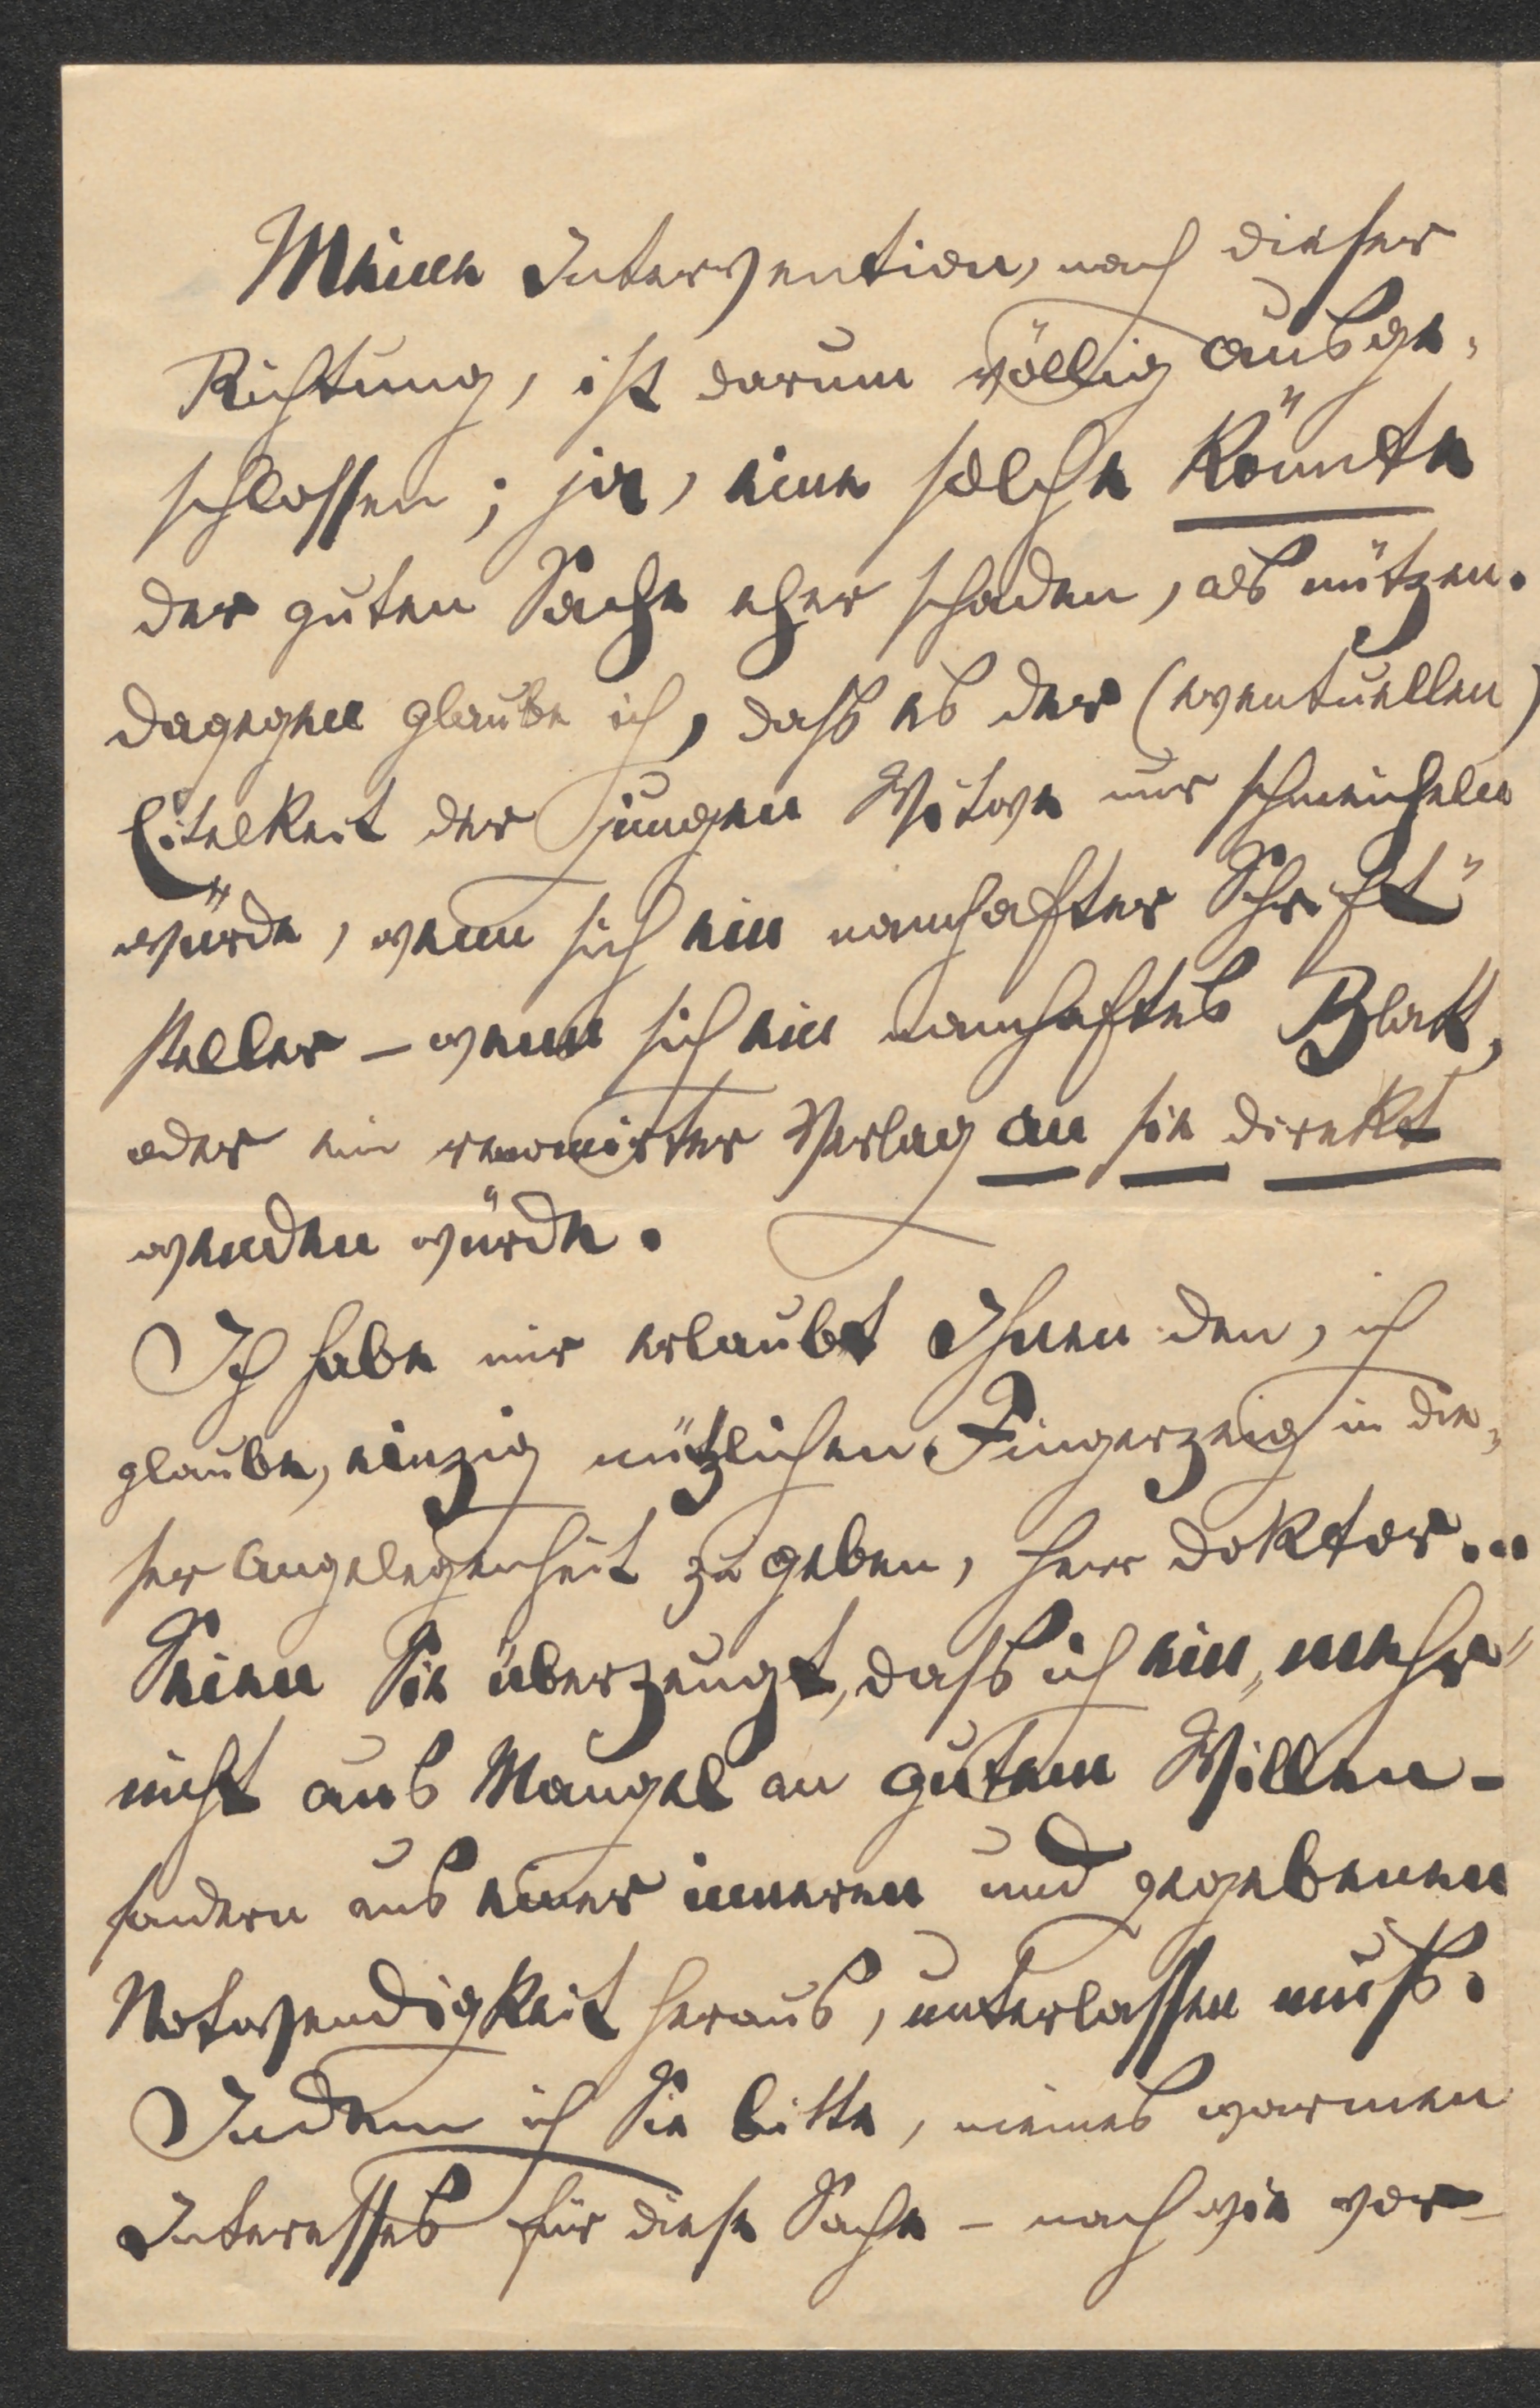 Meine Intervention, nach dieser
Richtung, ist darum völlig ausge-
schlossen; ja, eine solche könnte
der guten Sache eher schaden, als nützen.
Dagegen glaube ich, dass es der (eventuellen)
Eitelkeit der jungen Witwe nur schmeicheln
würde, wenn sich ein namhafter Schrift-
steller – wenn sich ein namhaftes Blatt,
oder ein renomirter Verlag an sie direkt
wenden würde.
Ich habe mir erlaubt Ihnen den, ich
glaube, einzig nützlichen Fingerzeig in die-
ser Angelegenheit zu geben, Herr Doktor...
Seien Sie überzeugt, dass ich ein „mehr“
nicht aus Mangel an gutem Willen –
sondern aus einer inneren und gegebenen
Notwendigkeit heraus, unterlassen muss.
Indem ich Sie bitte, meines warmen
Interesses für diese Sache – nach wie vor –